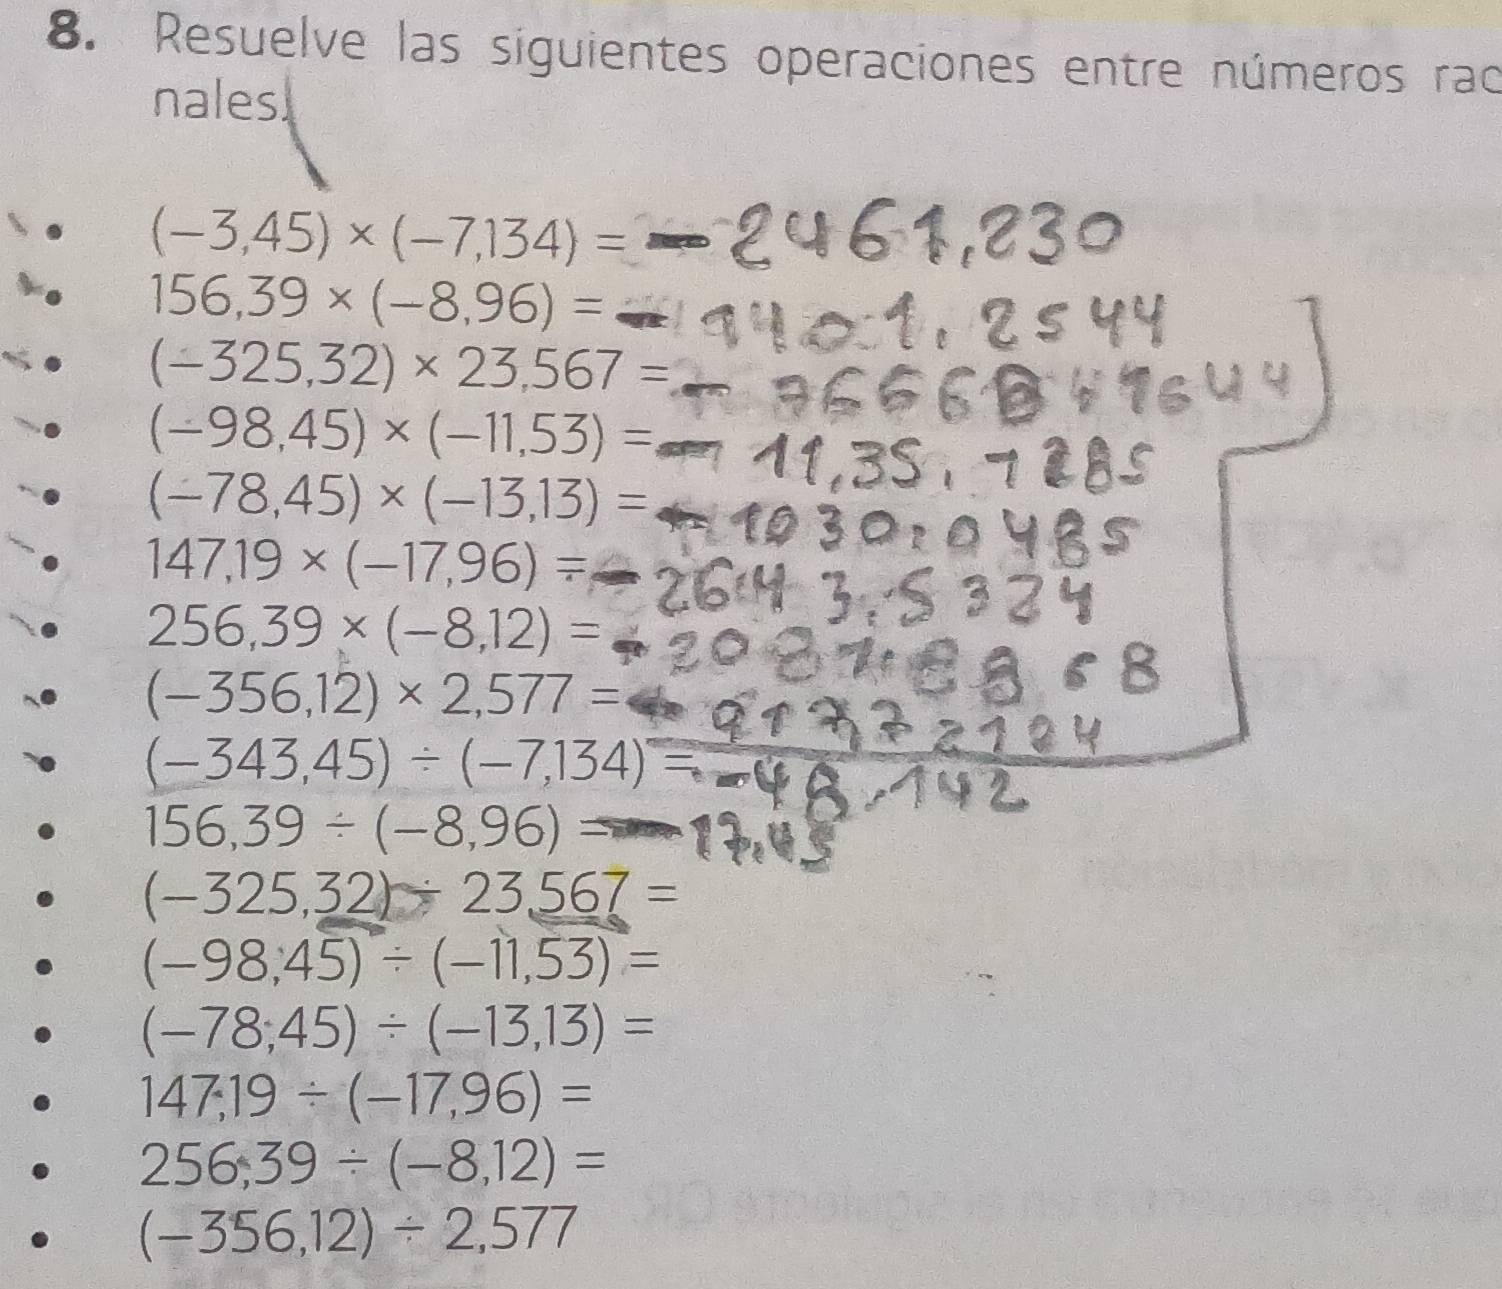 8. Resuelve las siguientes operaciones entre números rac
nales.
• (−3,45) × (−7,134) = −2461,230
• 156,39 × (−8,96) = −1401,2544
• (−325,32) × 23,567 = −
• (−98,45) × (−11,53) = − 11,35,1285
• (−78,45) × (−13,13) = 1030,0485
• 147,19 × (−17,96) = −2643,5324
• 256,39 × (−8,12) =
• (−356,12) × 2,577 =
• (−343,45) ÷ (−7,134) = −48,142
• 156,39 ÷ (−8,96) = −17,45
• (−325,32) ÷ 23,567 =
• (−98,45) ÷ (−11,53) =
• (−78,45) ÷ (−13,13) =
• 147,19 ÷ (−17,96) =
• 256,39 ÷ (−8,12) =
• (−356,12) ÷ 2,577